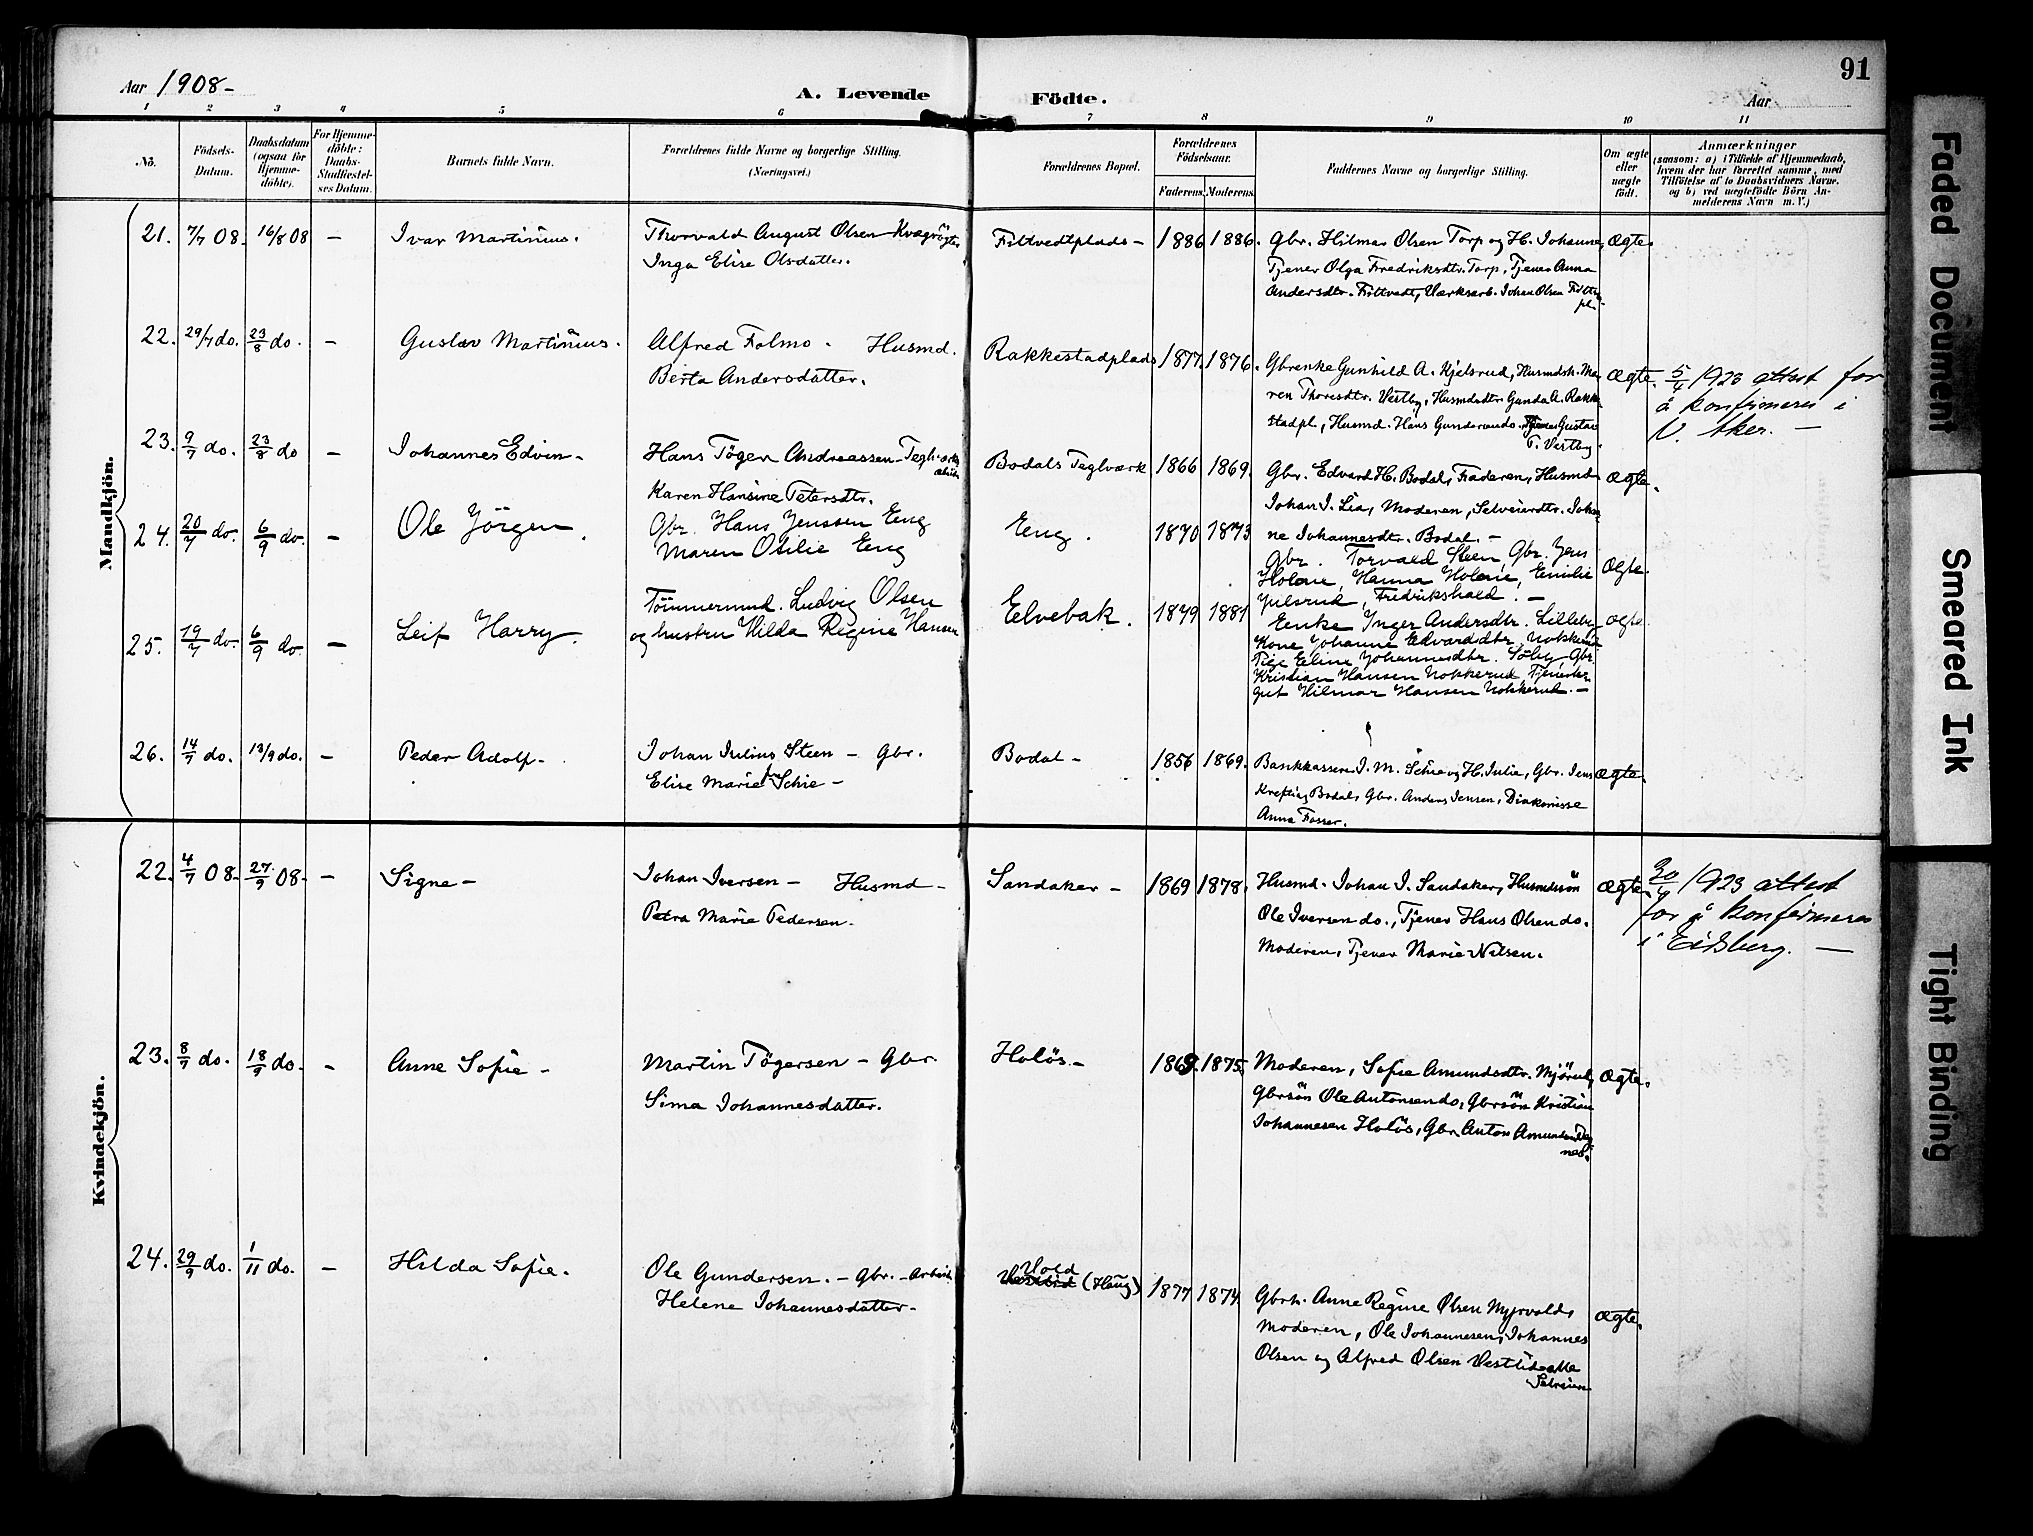 Aar 1908-
A. Levende Födte.
Aar
91
1 2 3 4 5 6 7 8 9 10 11
No.
Födsels-Datum.
Daabsdatum (ogsaa for Hjemme-döbte).
For Hjemme-döbte: Daabs-Stadfæstel-ses Datum.
Barnets fulde Navn.
Forældrenes fulde Navne og borgerlige Stilling. (Næringsvei.)
Forældrenes Bopæl.
Forældrenes Födselsaar.
Faderens. Moderens.
Faddernes Navne og borgerlige Stilling.
Om ægte eller uægte født.
Anmærkninger
(saasom: a) i Tilfælde af Hjemmedaab, hvem der har forrettet samme, med Tilföielse af to Daabsvidners Navne, og b) ved uægtefödte Börn Anmelderens Navn m. V.)
Mandkjön.
21. 7/7 08. 16/8 08 - Ivar Martinius. Thorvald August Olsen - Kvægrögter Fittvedtplads - 1886 1886. Gbr. Hilmar Olsen Torp og H. Johanne, Ægte.
Inga Elise Olsdatter. Tjener Olga Fredriksdtr. Torp, Tjener Anna
Andersdtr. Fittvedt, Værksarb. Johan Olsen
22. 29/7 do. 23/8 do. - Gustav Martinius. Alfred Folmo. Husmd. Rakkestadplads 1877. 1876. Gbrenke Gunhild A. Kjelsrud, Husmdsk. Ma- Ægte. 5/4 1923 attest for
Berta Andersdatter. ren Thoresdtr. Vestby, Husmdsdtr. Gunda A. Rakke- å konfirmeres i
stadpl., Husmd. Hans Gundersen do. Tjener Gustav V. Aker. -
T. Vestby.
23. 9/7 do. 23/8 do - Johannes Edvin - Hans Töger Andreassen - Teglverks Bodals Teglværk 1866 1869. Gbr. Edvard H. Bodal, Faderen, Husmd Ægte.
Karen Hansine Petersdtr. Johan J. Lia, Moderen, Selveierdtr. Joha-
ne Johannesdtr. Bodal. -
24. 20/7 do. 6/9 do. - Ole Jörgen. Gbr. Hans Jenssen Eng Eng. 1870 1873 Gbr. Torvald Steen, Gbr. Jens Ægte.
Maren Otilie Eng Holene, Hanna Holene, Emilie
Fredrikshald. -
25. 19/7 do. 6/9 do. - Leif Harry. Tömmermnd. Ludvig Olsen Elvebak. 1879 1881 Enke Inger Andersdtr. Lilleby ægte.
og hustru Hilda Regine Hansen Kone Johanne Edvardsdtr. Nokkerud
Pige Eline Johannesdtr. Söby, Gbr.
Kristian Hansen Nokkerud, Tjeneste-
gut Hilmar Hansen Nokkerud. -
26. 14/7 do. 13/9 do. - Peder Adolf - Johan Julius Steen - Gbr. Bodal - 1856 1869. Bankkasserer J. M. Schie og H. Julia, Gbr. Jens Ægte.
Elise Marie Schie - Krefting Bodal, Gbr. Anders Jensen, Diakonisse
Anna Fosser.
Kvindekjön.
22. 4/7 08. 27/9 08. - Signe - Johan Iversen - Husmd - Sandaker - 1869 1878. Husmd. Johan I. Sandaker, Husmdssön Ægte. 30/4 1923 attest
Petra Marie Pedersen. Ole Iversen do., Tjener Hans Olsen do. for å konfirmeres
Moderen, Tjener Marie Nilsen. i Eidsberg. -
23. 8/7 do. 18/9 do. - Anne Sofie - Martin Tögersen - Gbr. Holös - 1869. 1875. Moderen, Sofie Amundsdtr. Mjörud, Ægte.
Sima Johannesdatter. Gbrsön Ole Antonsen do, Gbrsön Kristian
Johannesen Holös, Gbr. Anton Amundsen
24. 29/9 do. 1/11 do. - Hilda Sofie. Ole Gundersen. - Gbr. - Arbeid. Vold (Haug) 1877 1874. Gbrk. Anne Regine Olsen Myrvold, Ægte.
Helene Johannesdatter - Moderen, Ole Johannesen, Johannes
Olsen og Alfred Olsen Vestlid alle
Selveiere
Faded Document
Smeared Ink
Tight Binding